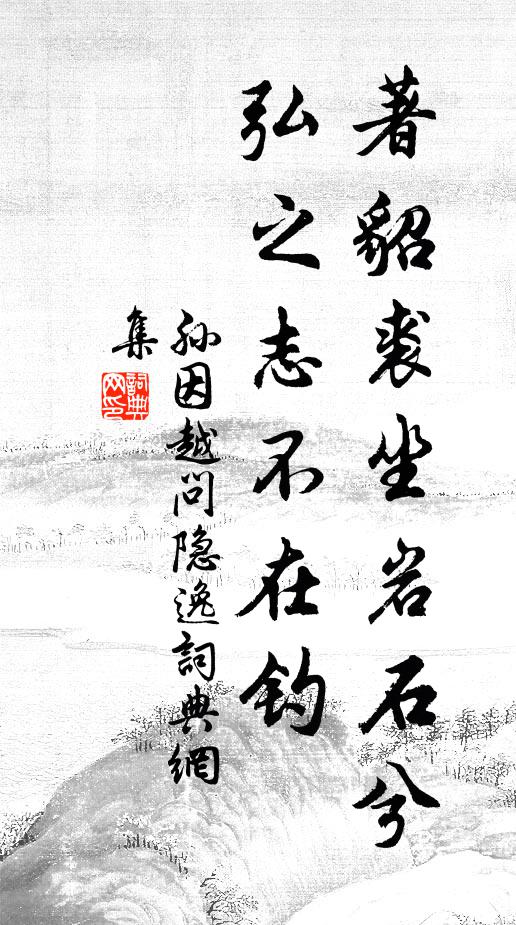 著貂裘坐岩石兮
弘之志不在钓
孙因越问隐逸詞典網
集
詞典
网印